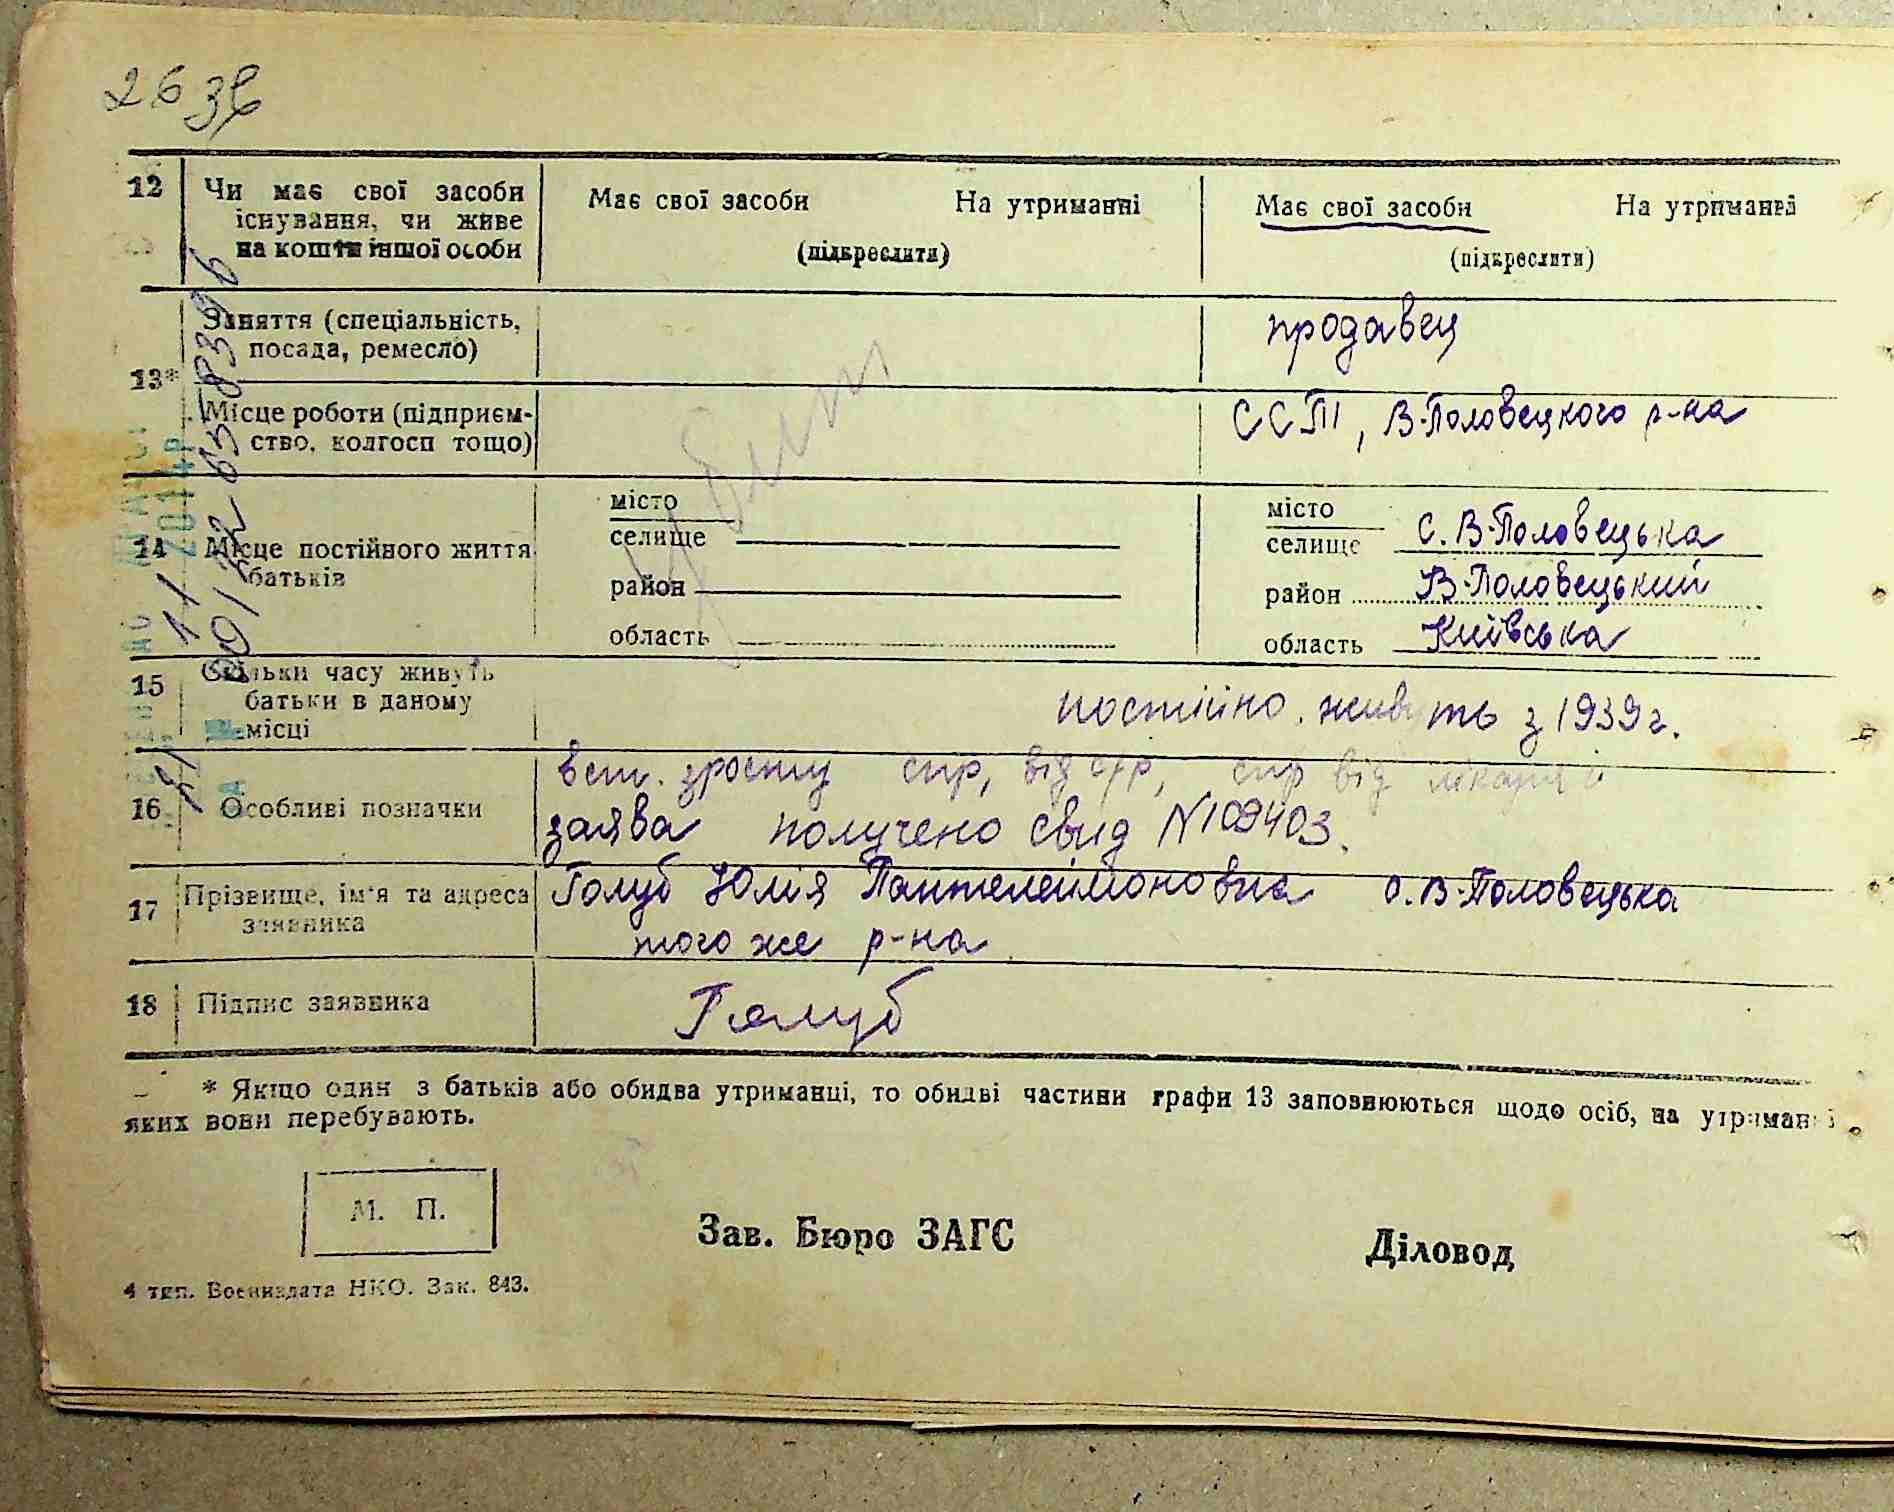 26 зв
12 Чи має свої засоби Має свої засоби На утриманні Має свої засоби На утриманні
існування, чи живе
на кошти іншої особи (підкреслити) (підкреслити)
Заняття (спеціальність, продавец
посада, ремесло)
13*
Місце роботи (підприєм- ССТІ, В-Половецкого р-на
ство, колгосп тощо)
місто місто
14 Місце постійного життя селище селище с. В-Половецька
батьків район район В-Половецький
область область Київська
15 Скільки часу живуть
батьки в даному постійно живуть з 1939 г.
місці
вст. зросту спр, від с/р, спр від
16 Особливі позначки заява получено свид N109403.
17 Прізвище, ім'я та адреса Голуб Юлія Пантелеймоновна с. В-Половецька
заявника того же р-на
18 Підпис заявника Голуб
* Якщо один з батьків або обидва утриманці, то обидві частини графи 13 заповнюються щодо осіб, на утриманні
яких вони перебувають.
М. П.
Зав. Бюро ЗАГС Діловод
4 тип. Воениздата НКО. Зак. 843.